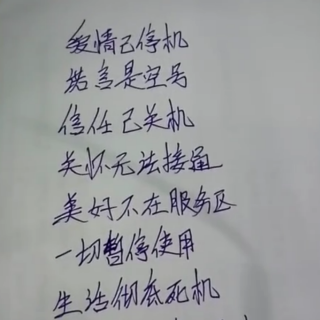 爱情已停机
诺言是空号
信任已关机
关怀无法接通
美好不在服务区
一切暂停使用
生活彻底死机